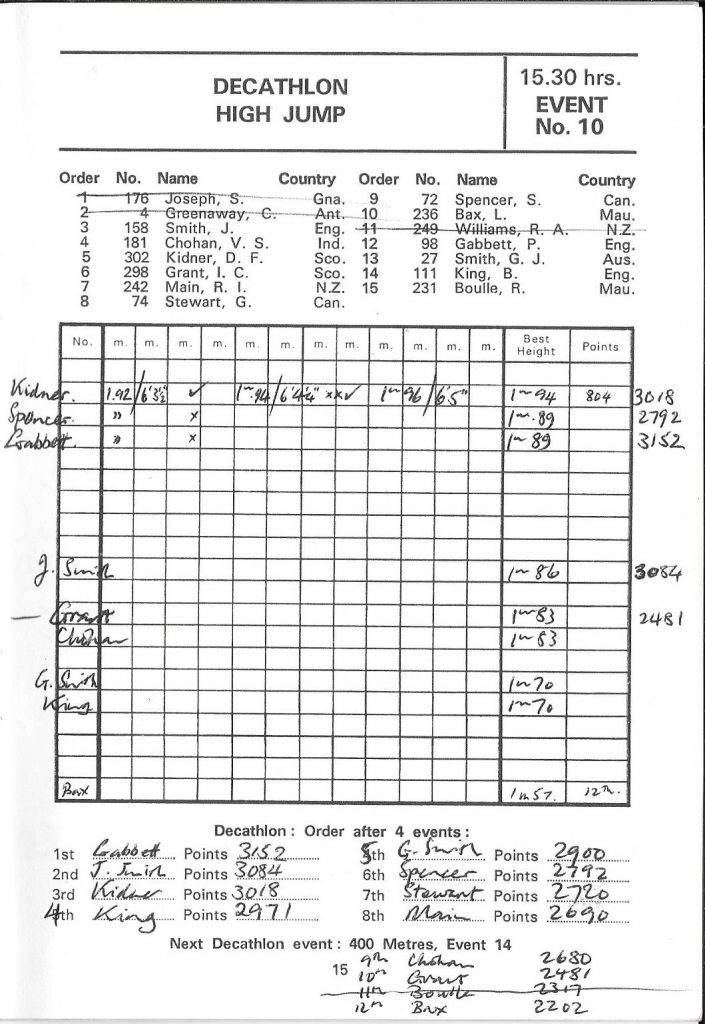 DECATHLON
HIGH JUMP
15.30 hrs.
EVENT
No. 10
Order No. Name Country Order No. Name Country
1 176 Joseph, S. Gna. 9 72 Spencer, S. Can.
2 4 Greenaway, C. Ant. 10 236 Bax, L. Mau.
3 158 Smith, J. Eng. 11 249 Williams, R. A. N.Z.
4 181 Chohan, V. S. Ind. 12 98 Gabbett, P. Eng.
5 302 Kidner, D. F. Sco. 13 27 Smith, G. J. Aus.
6 298 Grant, I. C. Sco. 14 111 King, B. Eng.
7 242 Main, R. I. N.Z. 15 231 Boulle, R. Mau.
8 74 Stewart, G. Can.
No. m. m. m. m. m. m. m. m. m. m. m. Best Height Points
Kidner. 1.92 / 6'3½" ✓ 1m.94 / 6'4¼" xx✓ 1m 96 / 6'5" 1m 94 804 3018
Spencer. " x 1m.89 2792
Gabbett. " x 1m 89 3152
J. Smith 1m 86 3084
— Grant 1m 83 2481
Chohan 1m 83
G. Smith 1m 70
King 1m 70
Bax 1m 57. 12th.
Decathlon : Order after 4 events :
1st Gabbett Points 3152 5th G. Smith Points 2900
2nd J. Smith Points 3084 6th Spencer Points 2792
3rd Kidner Points 3018 7th Stewart Points 2720
4th King Points 2971 8th Main Points 2690
Next Decathlon event : 400 Metres, Event 14
9th Chohan 2680
15 10th Grant 2481
11th Boulle 2317
12th Bax 2202